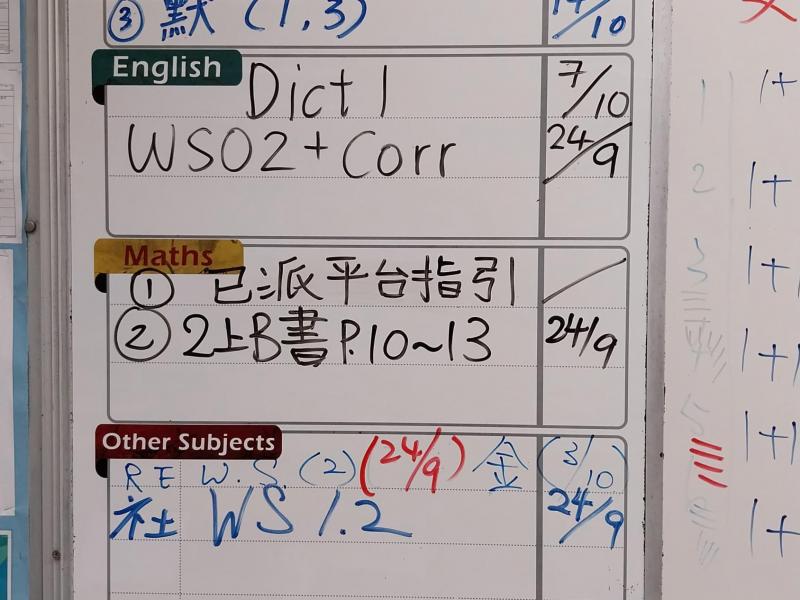 ③ 默 (1,3) 14/10
English
Dict 1 7/10
WS02 + Corr 24/9
Maths
① 已派平台指引
② 2上B書 P.10~13 24/9
Other Subjects
RE W.S. (2) (24/9) 金 (3/10)
社 WS 1.2 24/9
1+
2 1+
3 1+
1+1
1+1
1+